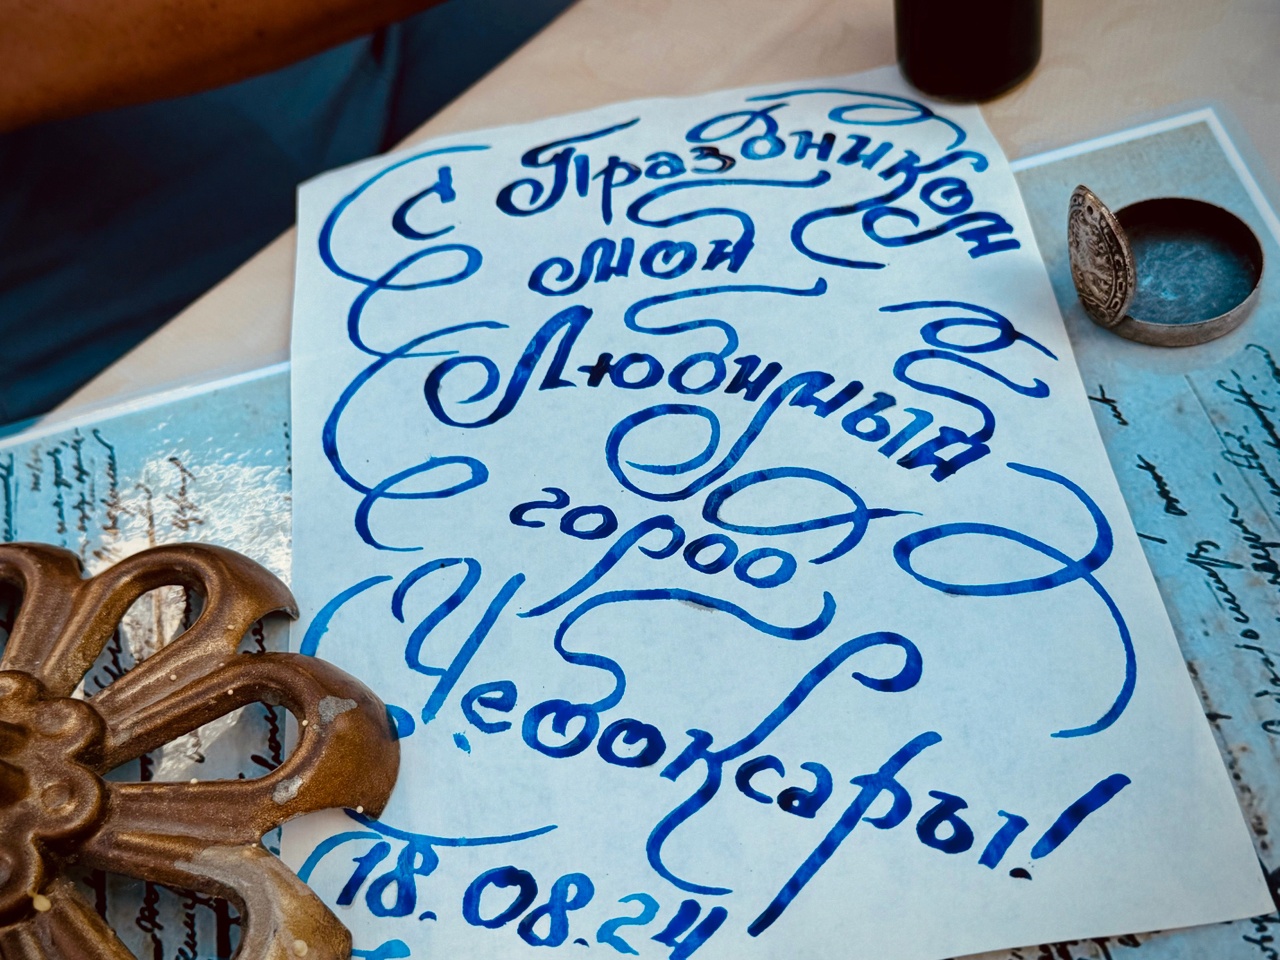 С Праздником
мой
Любимый
город
Чебоксары!
18.08.24